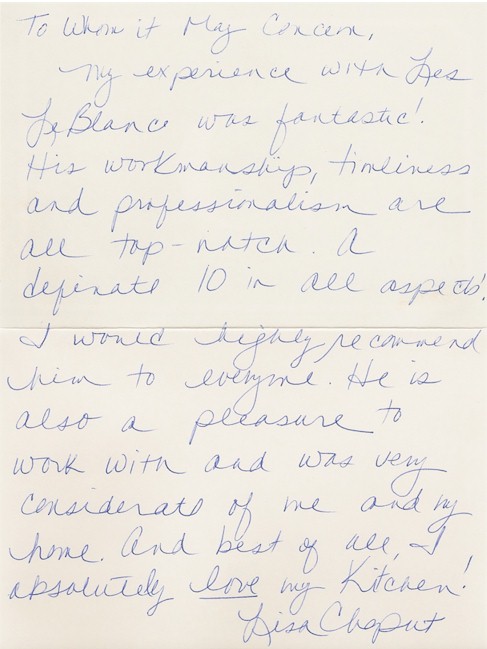 To Whom it May Concern,
My experience with Les
LeBlanc was fantastic!
His workmanship, timeliness
and professionalism are
all top-notch. A
definate 10 in all aspects!
I would highly recommend
him to everyone. He is
also a pleasure to
work with and was very
considerate of me and my
home. And best of all, I
absolutely love my Kitchen!
Lisa Chaput